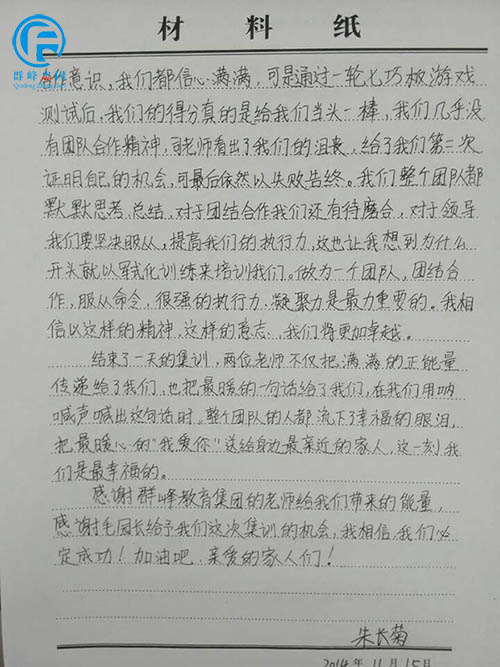 材料纸
群峰
合作意识，我们都信心满满，可是通过一轮七巧板游戏
测试后，我们的得分真的是给我们当头一棒，我们几乎没
有团队合作精神，司老师看出了我们的沮丧，给了我们第二次
证明自己的机会，可最后依然以失败告终。我们整个团队都
默默思考，总结，对于团结合作我们还有待磨合，对于领导
我们要坚决服从，提高我们的执行力，这也让我想到为什么
开头就以军式化训练来培训我们。做为一个团队，团结合
作，服从命令，很强的执行力，凝聚力是最力重要的。我相
信以这样的精神，这样的意志，我们将更加卓越。
结束了一天的集训，两位老师不仅把满满的正能量
传递给了我们，也把最暖的一句话给了我们，在我们用呐
喊声喊出这句话时，整个团队的人都流下了幸福的眼泪，
把最暖心的"我爱你"送给身边最亲近的家人，这一刻我
们是最幸福的。
感谢群峰教育集团的老师给我们带来的能量，
感谢毛园长给予我们这次集训的机会，我相信，我们必
定成功！加油吧，亲爱的家人们！
朱长菊
2014年11月15日